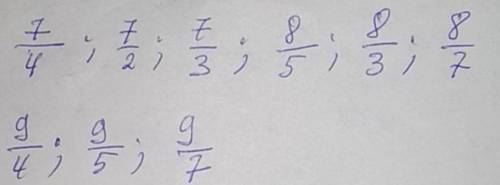 7/4 ; 7/2 ; 7/3 ; 8/5 ; 8/3 ; 8/7
9/4 ; 9/5 ; 9/7